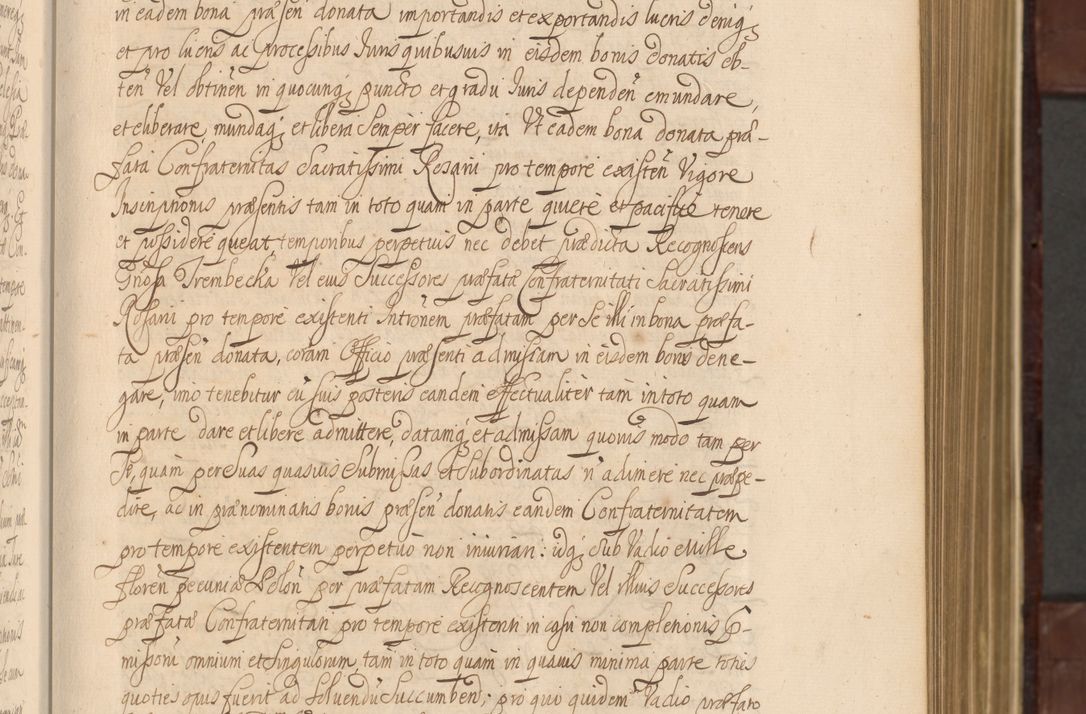 in eadem bona præsen̄ donata importandis et exportandis lucris deniq;
et pro lucris ac processibus Iuris quibusuis in eisdem bonis donatis ob-
ten̄ Vel obtinen̄ in quocunq; puncto et gradu Iuris dependen̄ emundare,
et eliberare, mundaq; et libera semper facere, ita Vt eadem bona donata præ-
fata Confraternitas Sacratissimi Rosarii pro tempore existen̄ Vigore
Inscriptionis præsentis tam in toto quam in parte quiete et pacifice tenere
et possidere queat temporibus perpetuis nec debet prædicta Recognoscens
Gnosa Trembecka Vel eius Successores præfatæ Confraternitati Sacratissimi
Rosarii pro tempore existenti Intronem præfatam per se illi in bona præfa-
ta præsen̄ donata, coram Officio præsenti admissam in eisdem bonis dene-
gare, imo tenebitur cū suis posteris eandem effectualiter tam in toto quam
in parte dare et libere admittere, datamq; et admissam quouis modo tam per
se, quam per suas quasuis submissas et subordinatas n̄ adimere nec præpe-
dire, ac in prænominatis bonis præsen̄ donatis eandem Confraternitatem
pro tempore existentem perpetuo non iniuriari: idq; sub Vadio Mille
floren̄ pecuniæ Polon̄ per præfatam Recognoscentem Vel illius Successores
præfatæ Confraternitati pro tempore existenti in casu non completionis P-
missorū omnium et singulorum, tam in toto quam in quauis minima parte toties
quoties opus fuerit ad soluendū succumben̄; pro quo quidem Vadio præfato